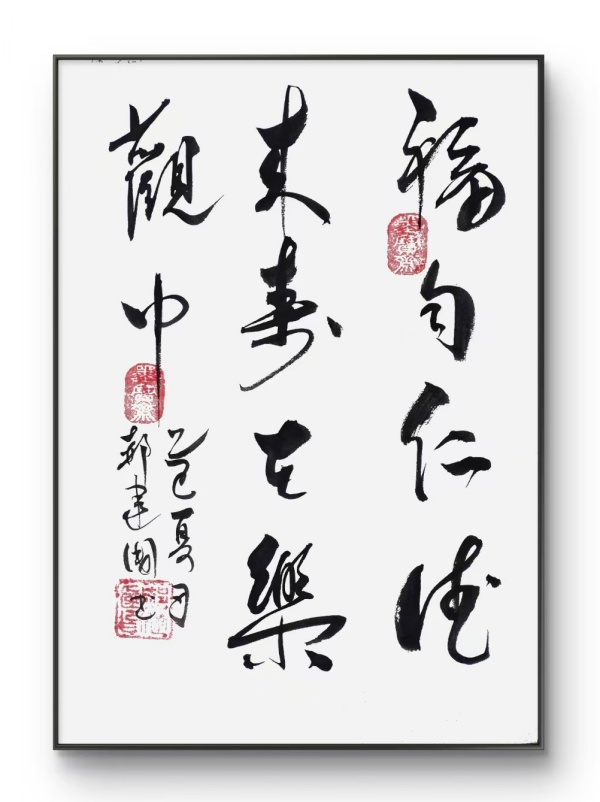 福自仁德
来寿在樂
觀中
乙巳夏月
郝建國书